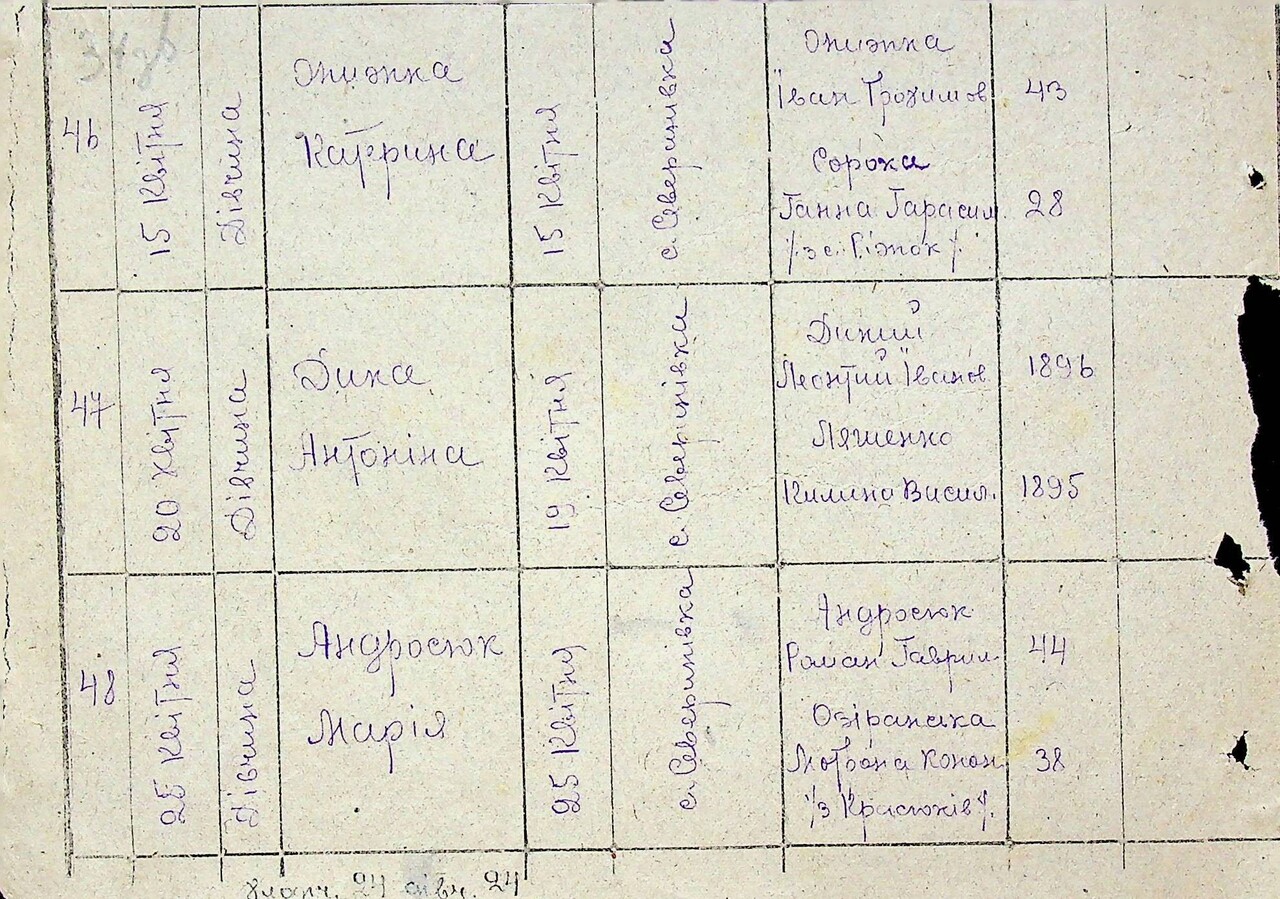 34зв
46
15 Квітня
Дівчина
Онижка
Катерина
15 Квітня
с. Северинівка
Онижка
Іван Трохимов
43
Сорока
Ганна Гарасим.
28
/з с.
47
20 Квітня
Дівчина
Дика
Антоніна
19 Квітня
с. Северинівка
Дикий
Леонтий Іванов
1896
Ляшенко
Килина Васил.
1895
48
25 Квітня
Дівчина
Андросюк
Марія
25 Квітня
с. Северинівка
Андросюк
Роман Гаврил.
44
Мотрона Конон.
38
/з Красюків/.
хлопч. 24 дівч. 24